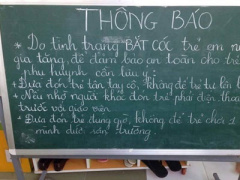 THÔNG BÁO
* Do tình trạng BẮT CÓC trẻ em
gia tăng, để đảm bảo an toàn cho trẻ
phụ huynh cần lưu ý:
+ Đưa đón trẻ tận tay cô, không để trẻ tự lên
+ Nếu nhờ người khác đón trẻ phải điện thoại
trước với giáo viên
+ Đưa đón trẻ đúng giờ, không để trẻ chơi 1
mình dưới sân trường.